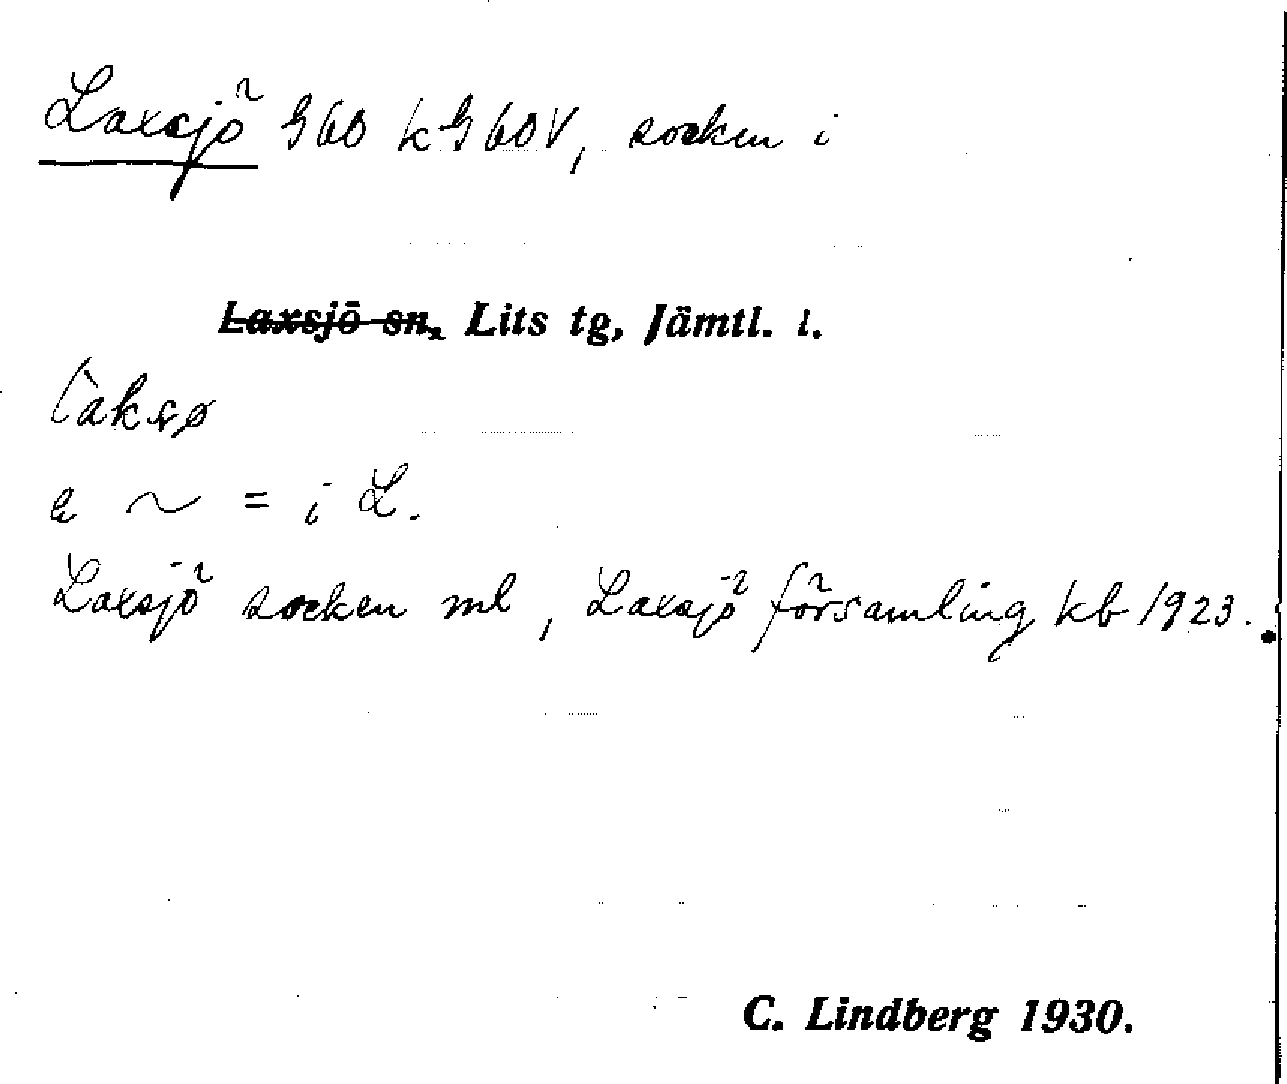 Laxsjö G60 kG60V, socken i
Laxsjö sn, Lits tg, Jämtl. l.
e ~ = i L.
Laxsjö socken ml, Laxsjö församling kb 1923.
C. Lindberg 1930.